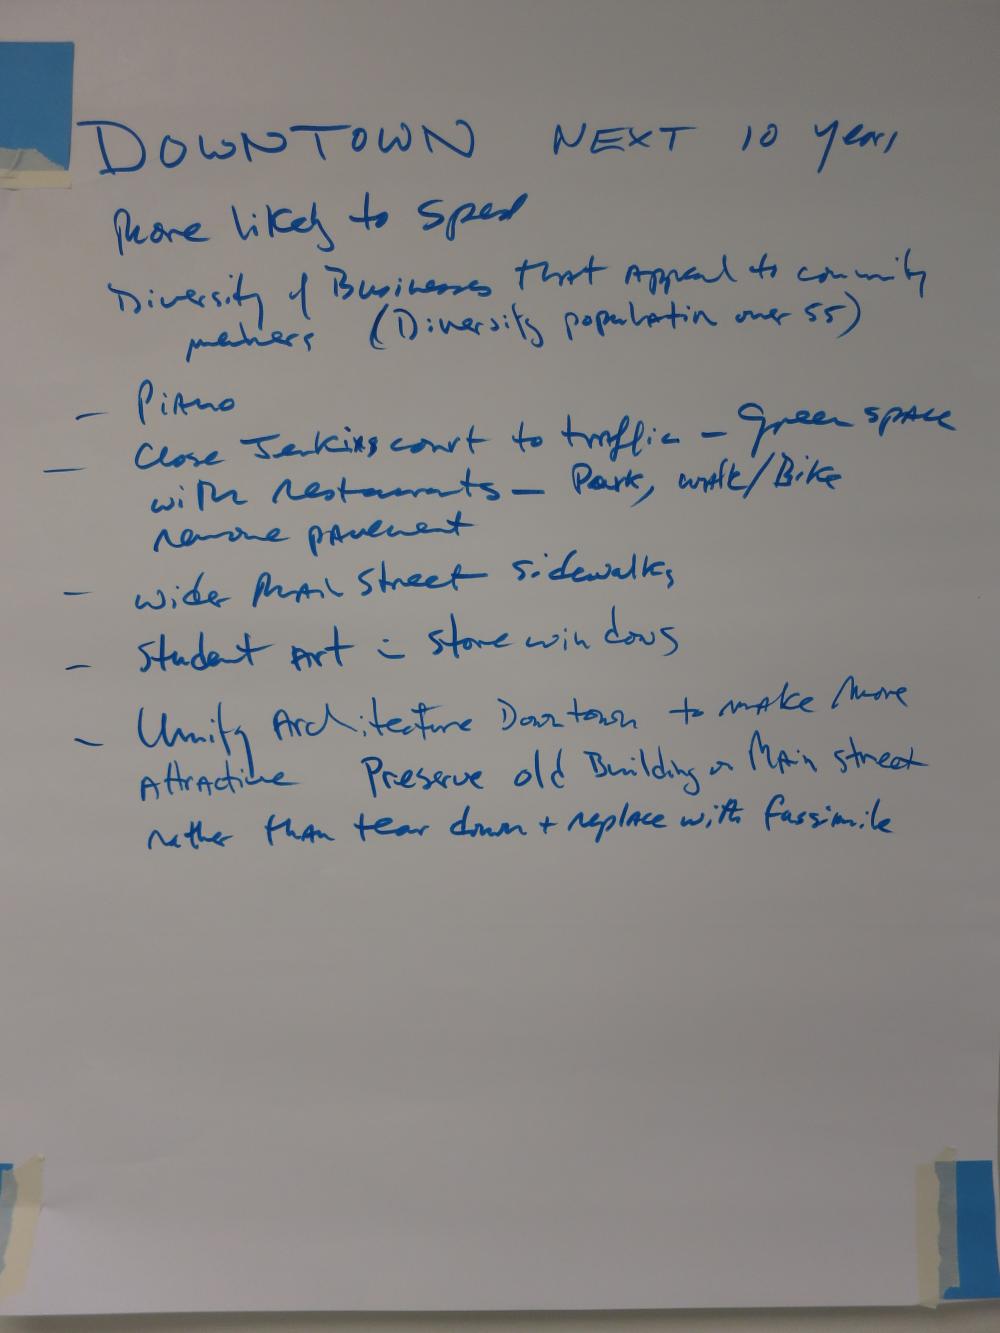 DOWNTOWN NEXT 10 years
More likely to spend
Diversity of Businesses that appeal to community
members (Diversify population over 55)
- Piano
- Close Jenkins court to traffic - Green space
with restaurants - Park, walk/Bike
remove pavement
- wider Main Street sidewalks
- Student Art in store windows
- Unify Architecture Downtown to make more
Attractive Preserve old Building on Main street
rather than tear down + replace with fassimile